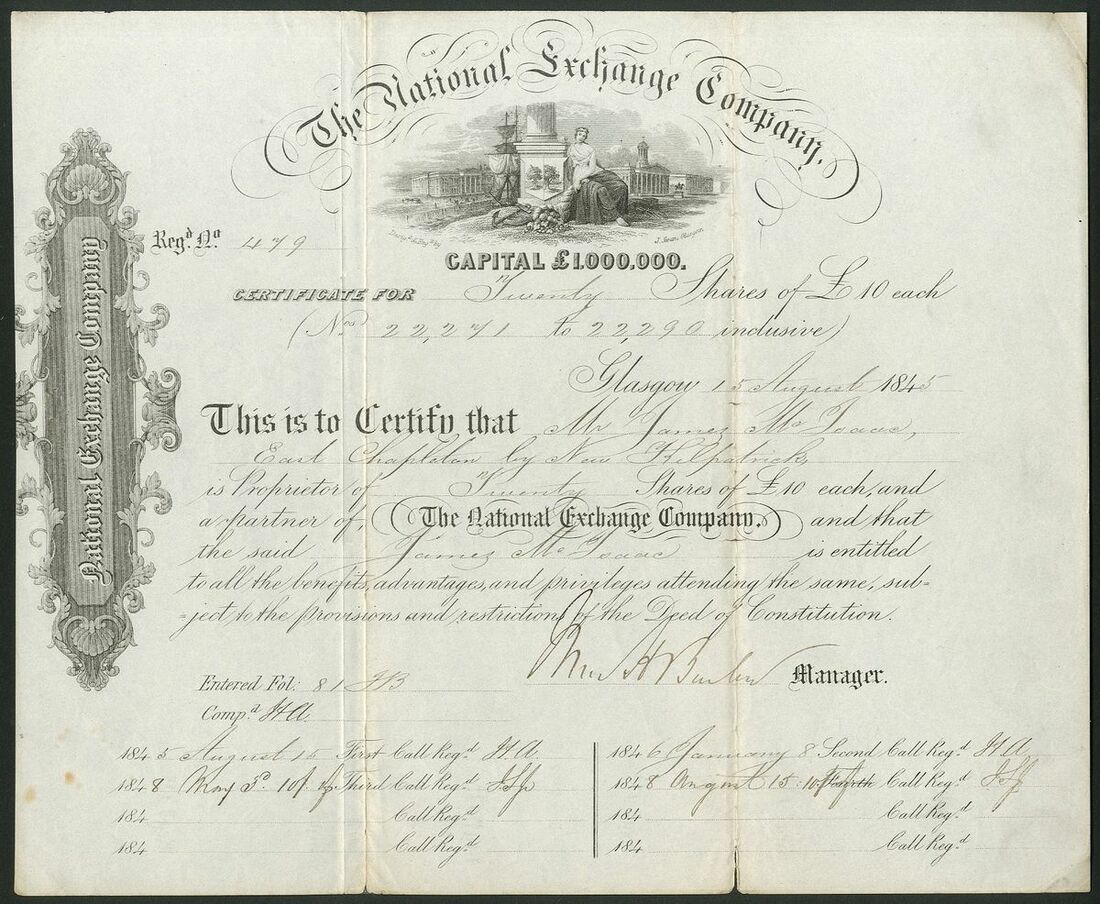 The National Exchange Company.
National Exchange Company
Regd. No. 479
CAPITAL £1,000,000.
CERTIFICATE FOR Twenty Shares of £10 each
(Nos. 22,271 to 22,290 inclusive)
Glasgow 15 August 1845
This is to Certify that Mr James McIsaac,
East Chapleton by New Kilpatrick,
is Proprietor of Twenty Shares of £10 each, and
a partner of, The National Exchange Company, and that
the said James McIsaac is entitled
to all the benefits, advantages, and privileges attending the same, sub=
=ject, to the provisions and restrictions of the Deed of Constitution.
Manager.
Entered Fol: 81 JB
Compd. HA
1845 August 15 First Call Regd. HA
1848 May 3d 10/ Third Call Regd.
184 Call Regd.
184 Call Regd.
1846 January 8 Second Call Regd. HA
1848 August 15 Fourth Call Regd.
184 Call Regd.
184 Call Regd.